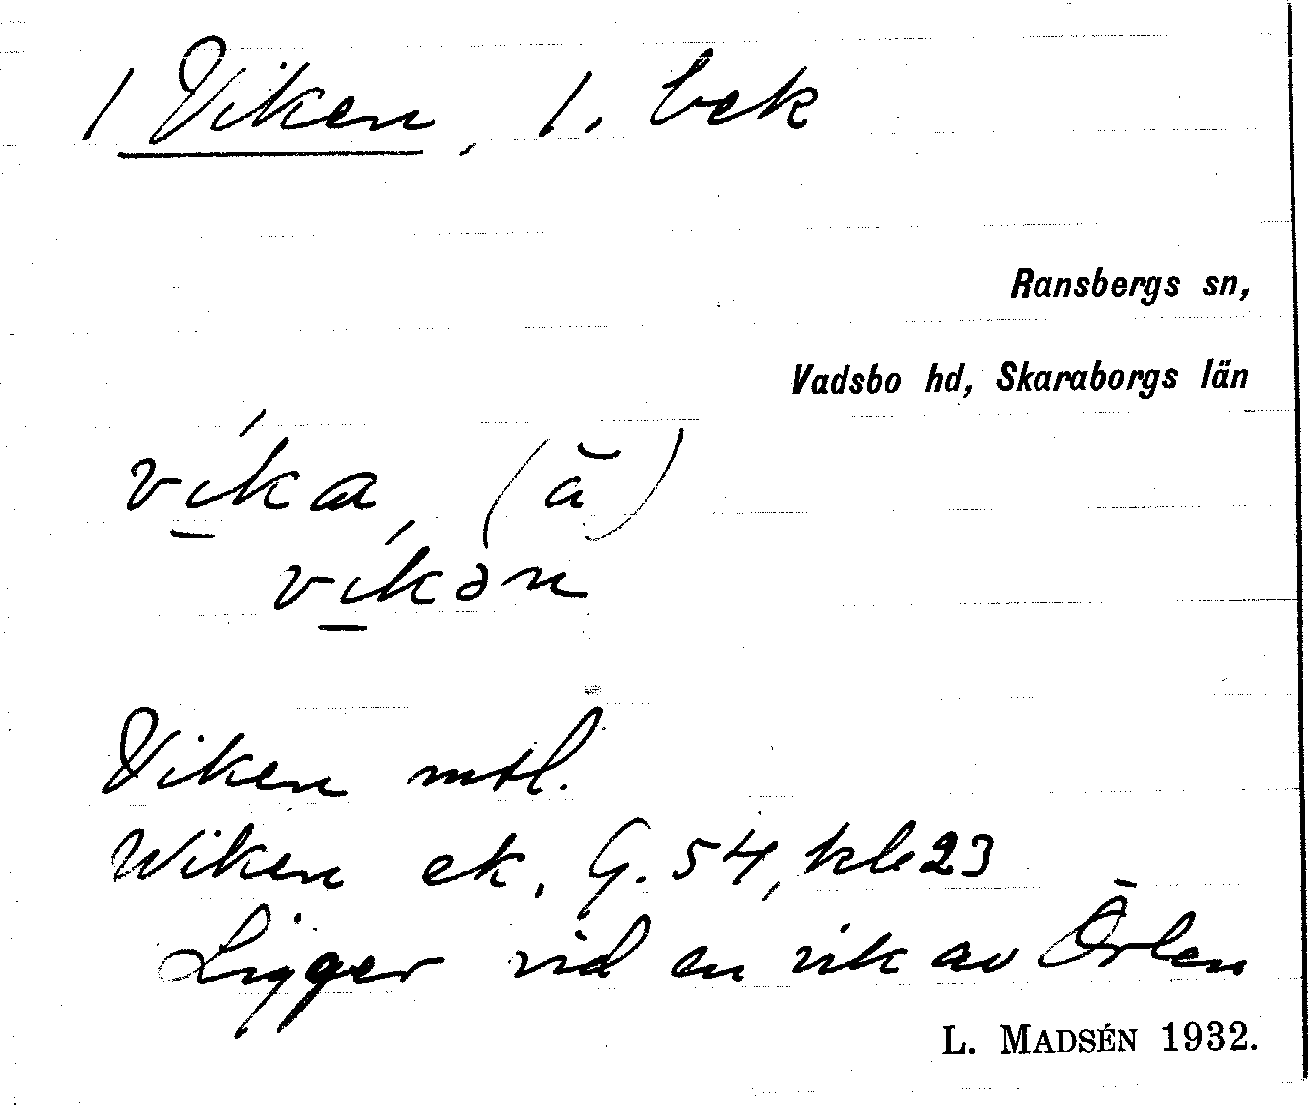 1 Viken, 1. bek
Ransbergs sn,
Vadsbo hd, Skaraborgs län
víka, (ă)
víkən
Viken mtl.
Wiken ek. G. 54, kb 23
Ligger vid en vik av Örlen
L. MADSÉN 1932.